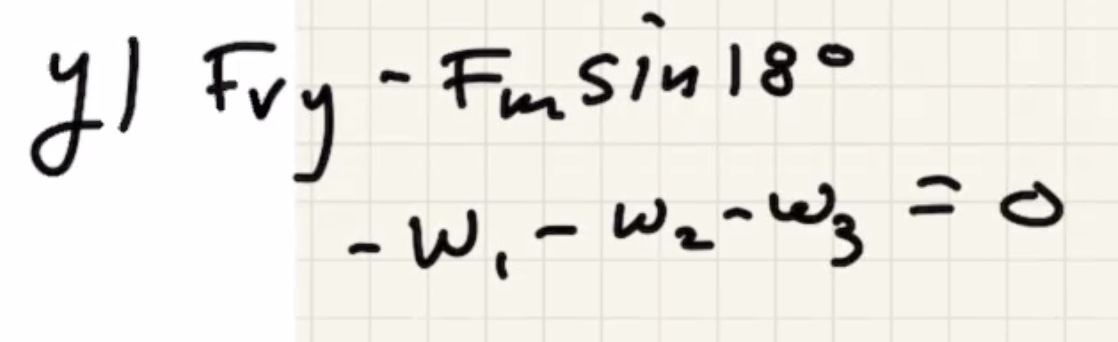 y) Fvy - Fm sin 18°
- w₁ - w₂ - w₃ = 0